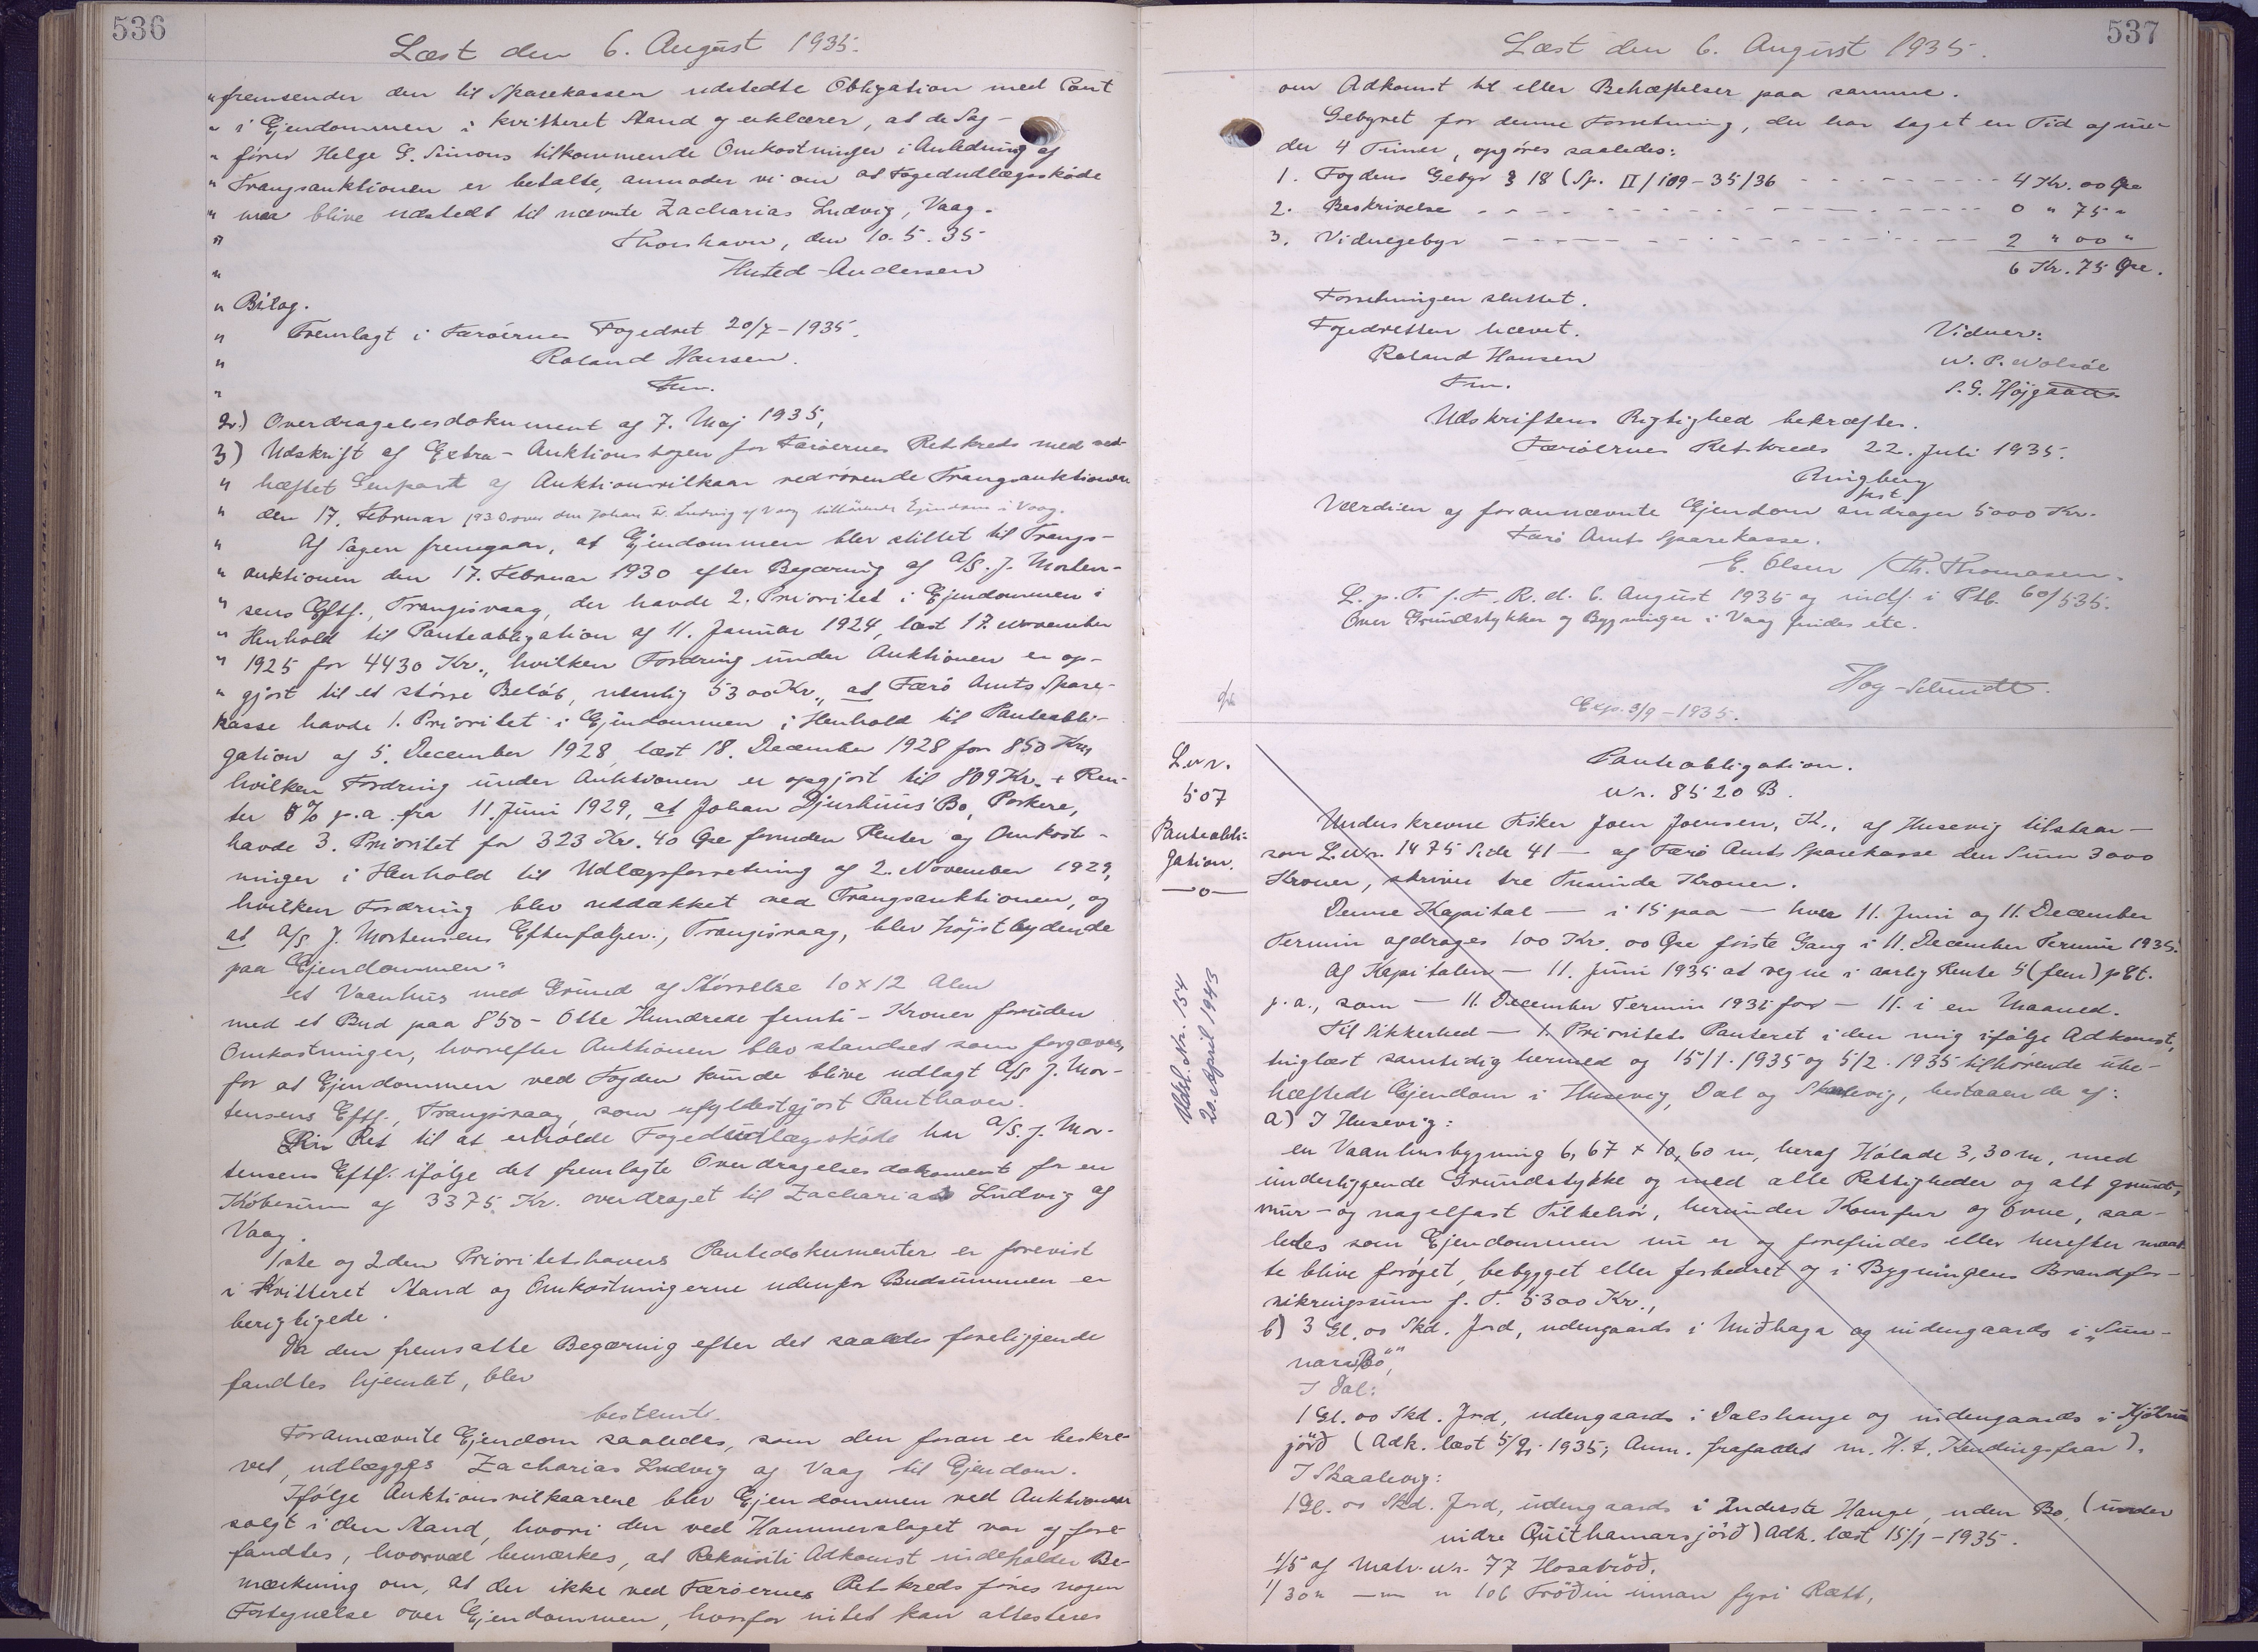 536
Læst den 6. August 1935.
" fremsender den til Sparekassen udstedte Obligation med Pant
" i Ejendommen i kvitteret Stand og erklærer, at de Sag-
" fører Helge G. Simons tilkommende Omkostninger i Anledning af
" Tvangsauktionen er betalte, anmoder vi om at Fogedudlægsskøde
" maa blive udstedt til nævnte Zacharias Ludvig, Vaag.
" Thorshavn, den 10.5.35
" Husted-Andersen
" Bilag.
" Fremlagt i Færøernes Fogedret 20/7-1935.
" Roland Hansen.
" Fm.
2.) Overdragelsesdokument af 7. Maj 1935,
3) Udskrift af Extra-Auktionsbogen for Færøernes Retskreds med ved-
" hæftet Genpart af Auktionsvilkaar vedrørende Tvangsauktionen
" den 17. Februar 1930 over den Johan Fr. Ludvig af Vaag tilhørende Ejendom i Vaag.
" Af Sagen fremgaar, at Ejendommen blev stillet til Tvangs-
" auktionen den 17. Februar 1930 efter Begæring af A/S. J. Morten-
" sens Eftf., Trangisvaag, der havde 2. Prioritet i Ejendommen i
" Henhold til Panteobligation af 11. Januar 1924, læst 17. November
" 1925 for 4430 Kr., hvilken Fordring under Auktionen er op-
" gjort til et større Beløb, nemlig 5300 Kr., at Færø Amts Spare-
kasse havde 1. Prioritet i Ejendommen i Henhold til Panteobli-
gation af 5. December 1928, læst 18. December 1928 for 850 Kr.,
hvilken Fordring under Auktionen er opgjort til 809 Kr. + Ren-
ter 6% p.a. fra 11. Juni 1929, at Johan Djurhuus' Bo, Porkere,
havde 3. Prioritet for 323 Kr. 40 Øre foruden Renter og Omkost-
ninger i Henhold til Udlægsforretning af 2. November 1929,
hvilken Fordring blev uddækket ved Tvangsauktionen, og
at A/S J. Mortensens Efterfølger, Trangisvaag, blev højstbydende
paa Ejendommen"
et Vaanhus med Grund af Størrelse 10 x 12 Alen
med et Bud paa 850 - Otte Hundrede femti - Kroner foruden
Omkostninger, hvorefter Auktionen blev standset som forgæves,
for at Ejendommen ved Fogden kunde blive udlagt A/S J. Mor-
tensens Eftf., Trangisvaag, som ufyldestgjort Panthaver.
Sin Ret til at erholde Fogedudlægsskøde har A/S. J. Mor-
tensens Eftf. ifølge det fremlagte Overdragelsesdokument for en
Købesum af 3375 Kr. overdraget til Zacharias Ludvig af
Vaag.
1ste og 2den Prioritetshavers Pantedokumenter er forevist
i kvitteret Stand og Omkostningerne udenfor Budsummen er
berigtigede.
Da den fremsatte Begæring efter det saaledes foreliggende
fandtes hjemlet, blev
bestemt.
Forannævnte Ejendom saaledes, som den foran er beskre-
vet, udlægges Zacharias Ludvig af Vaag til Ejendom.
Ifølge Auktionsvilkaarene blev Ejendommen ved Auktionen
solgt i den Stand, hvori den ved Hammerslaget var og fore-
fandtes, hvorved bemærkes, at Rekvisiti Adkomst indeholder Be-
mærkning om, at der ikke ved Færøernes Retskreds føres nogen
Fortegnelse over Ejendommen, hvorfor intet kan attesteres
537
Læst den 6. August 1935.
om Adkomst til eller Behæftelser paa samme.
Gebyret for denne Forretning, der har taget en Tid af un-
der 4 Timer, opgøres saaledes:
1. Fogdens Gebyr § 18 (Sp. II/109-35/36 - - - - 4 Kr. 00 Øre
2. Beskrivelse - - - - 0 " 75 "
3. Vidnegebyr - - - - 2 " 00 "
6 Kr. 75 Øre.
Forretningen sluttet.
Fogedretten hævet. Vidner:
Roland Hansen N. P. Nolsøe
Fm. S. G. Højgaard
Udskriftens Rigtighed bekræftes.
Færøernes Retskreds 22. Juli 1935.
Ringberg
fst.
Værdien af forannævnte Ejendom andrager 5000 Kr.
Færø Amts Sparekasse.
E. Olsen / Th. Thomasen.
L. p. T. f. F. R. d. 6. August 1935 og indf. i Ptb. 60/535.
Over Grundstykker og Bygninger i Vaag findes etc.
Høg-Schmidt.
Exp. 3/9-1935.
L. Nr.
507
Panteobli-
gation.
—o—
Panteobligation.
Nr. 8520 B.
Underskrevne Fisker Joen Joensen, K., af Husevig tilstaar —
som L.Nr. 1475 Side 41 — af Færø Amts Sparekasse den Sum 3000
Kroner, skriver tre Tusinde Kroner.
Denne Kapital — i 15 paa — hver 11. Juni og 11. December
Termin afdrages 100 Kr. 00 Øre første Gang i 11. December Termin 1935.
Af Kapitalen — 11. Juni 1935 at regne i aarlig Rente 5 (fem) pCt.
p.a., som — 11. December Termin 1935 for — 11. i en Maaned.
Til Sikkerhed — 1. Prioritets Panteret i den mig ifølge Adkomst,
tinglæst samtidig hermed og 15/1. 1935 og 5/2. 1935 tilhørende ube-
hæftede Ejendom i Husevig, Dal og Skaalevig, bestaaende af:
Slettet. Nr. 154
20 April 1943
a) I Husevig:
en Vaanhusbygning 6,67 x 10,60 m, heraf Hølade 3,30 m, med
underliggende Grundstykke og med alle Rettigheder og alt grund-,
mur- og nagelfast Tilbehør, herunder Komfur og Ovne, saa-
ledes som Ejendommen nu er og forefindes eller herefter maat-
te blive forøget, bebygget eller forbedret og i Bygningens Brandfor-
sikringssum f. T. 5300 Kr.,
b) 3 Gl. 00 Skd. Jord, udengaards i Miðhaga og indengaards i "Sun-
nara Bø",
I Dal:
1 Gl. 00 Skd. Jord, udengaards i Dalshauge og indengaards i
jörð (Adk. læst 5/2. 1935; Anm. frafaldet m. H. t. Kendingsfaar).
I Skaalevig:
1 Gl. 00 Skd. Jord, udengaards i Inderste Hauge, uden Bø, (under
nidre Quithamarsjörð) Adk. læst 15/1-1935.
1/5 af Matr. Nr. 77 Hosatröð,
1/30 " — " 106 Tröðin innan fyri Rætt,